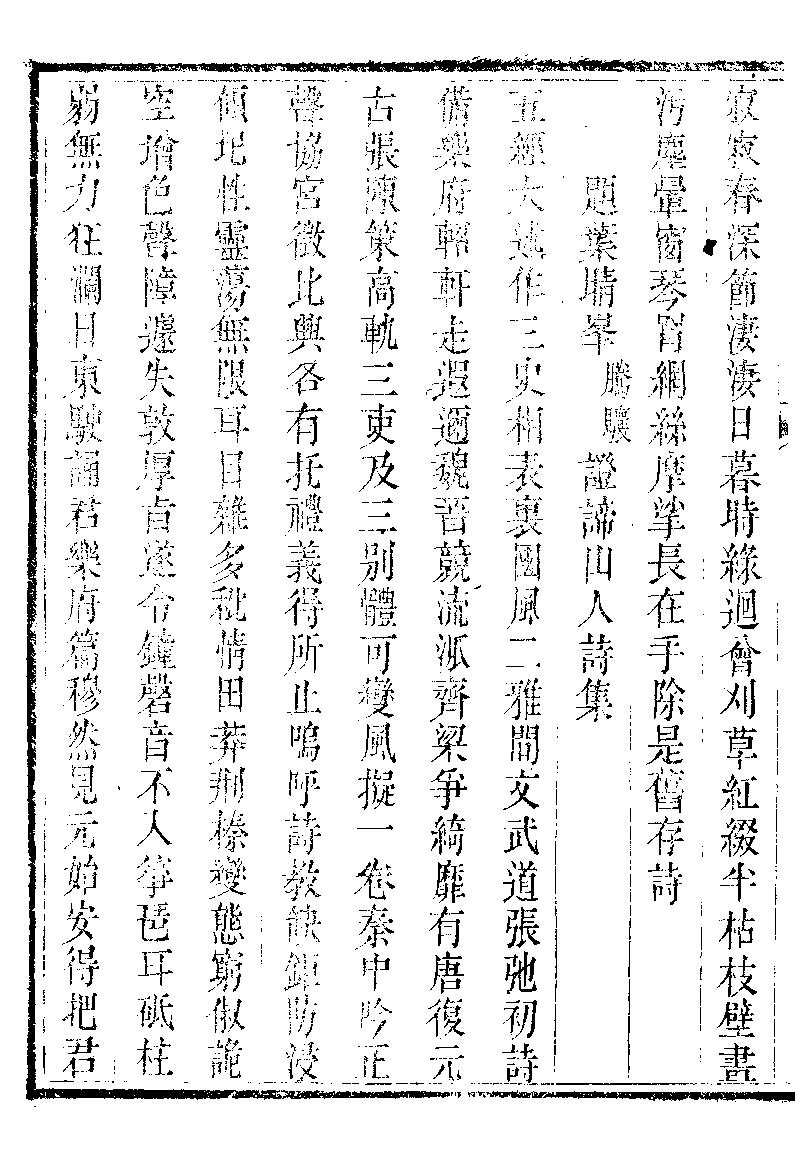 寂寞春深節淒淒日暮時綠迴曾刈草紅綴半枯枝壁畫
污塵暈窗琴罥網絲摩挲長在手除是舊存詩
題葉晴峯騰驤證諦山人詩集
五經大述作三史相表裏國風二雅間文武道張弛初詩
備樂府輶軒走遐邇魏晉競流派齊梁爭綺靡有唐復元
古張陳策高軌三吏及三別體可變風擬一卷秦中吟正
聲協宮徵比興各有托禮義得所止嗚呼詩教缺鉅防浸
傾圮性靈蕩無限耳目雜多秕情田莽荆榛變態窮俶詭
空增色聲障遽失敦厚旨遂令鐘磬音不入箏琶耳砥柱
弱無力狂瀾日東駛誦君樂府篇穆然見元始安得把君